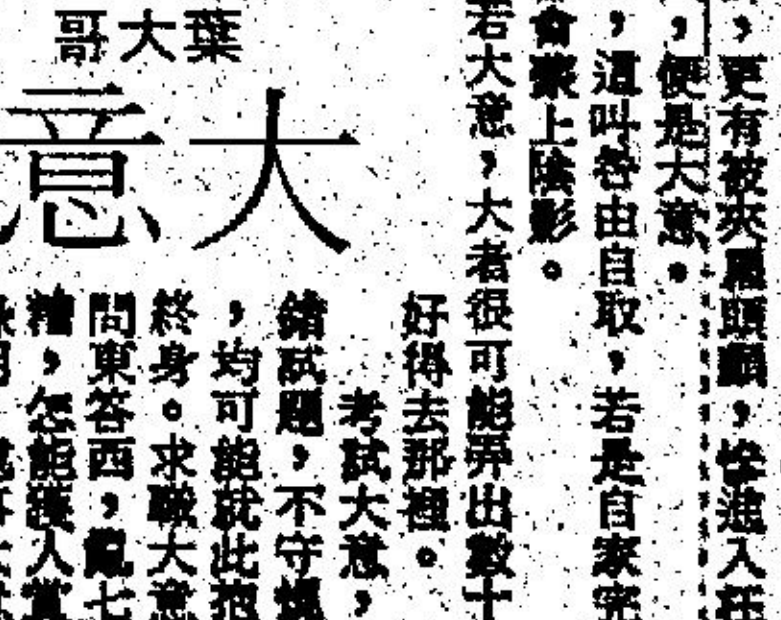 葉大哥
大意
，更有被夾
，便是大意。
，這叫咎由自取，若是自家
會蒙上陰影。
若大意，大者很可能弄出數十
好得去那裡。
考試大意，
錯試題，不守規
，均可能就此抱
終身。求職大意
問東答西，亂七
糟，怎能讓人賞